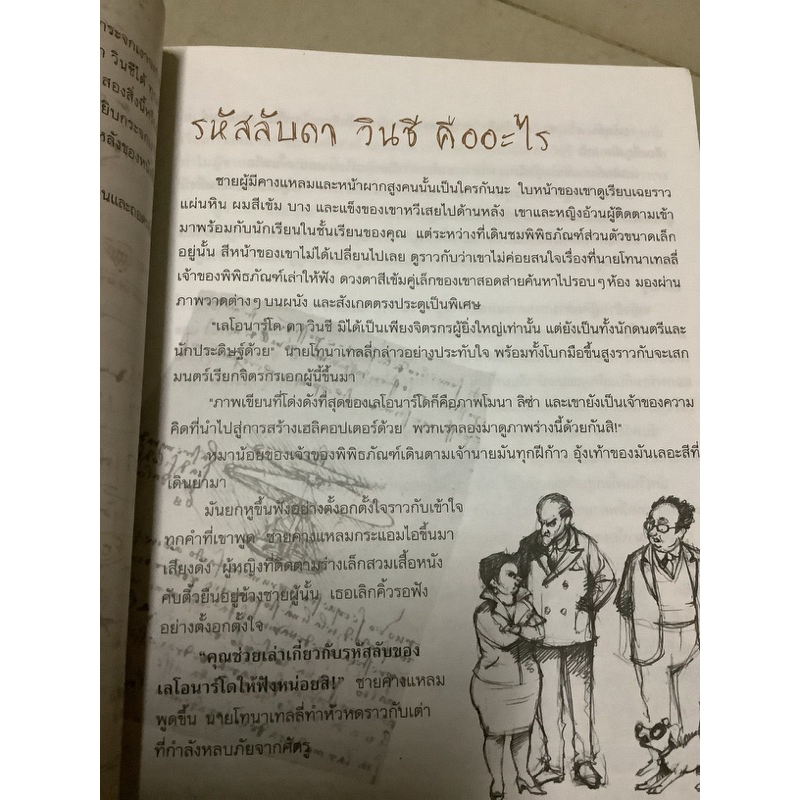 กระจกเงา
วินชีได้
สองสิ่งนี้
ยิบกระจก
หลังของ
รหัสลับดา วินชี คืออะไร
ชายผู้มีคางแหลมและหน้าผากสูงคนนั้นเป็นใครกันนะ ใบหน้าของเขาดูเรียบเฉยราว
แผ่นหิน ผมสีเข้ม บาง และแข็งของเขาหวีเสยไปด้านหลัง เขาและหญิงอ้วนผู้ติดตามเข้า
มาพร้อมกับนักเรียนในชั้นเรียนของคุณ แต่ระหว่างที่เดินชมพิพิธภัณฑ์ส่วนตัวขนาดเล็ก
อยู่นั้น สีหน้าของเขาไม่ได้เปลี่ยนไปเลย ดูราวกับว่าเขาไม่ค่อยสนใจเรื่องที่นายโทนาเทลลี่
เจ้าของพิพิธภัณฑ์เล่าให้ฟัง ดวงตาสีเข้มคู่เล็กของเขาสอดส่ายค้นหาไปรอบๆห้อง มองผ่าน
ภาพวาดต่างๆบนผนัง และสังเกตตรงประตูเป็นพิเศษ
"เลโอนาร์โด ดา วินชี มิได้เป็นเพียงจิตรกรผู้ยิ่งใหญ่เท่านั้น แต่ยังเป็นทั้งนักดนตรีและ
นักประดิษฐ์ด้วย" นายโทนาเทลลี่กล่าวอย่างประทับใจ พร้อมทั้งโบกมือขึ้นสูงราวกับจะเสก
มนตร์เรียกจิตรกรเอกผู้นี้ขึ้นมา
"ภาพเขียนที่โด่งดังที่สุดของเลโอนาร์โดก็คือภาพโมนา ลิซ่า และเขายังเป็นเจ้าของความ
คิดที่นำไปสู่การสร้างเฮลิคอปเตอร์ด้วย พวกเราลองมาดูภาพร่างนี้ด้วยกันสิ!"
หมาน้อยของเจ้าของพิพิธภัณฑ์เดินตามเจ้านายมันทุกฝีก้าว อุ้งเท้าของมันเลอะสีที่
เดินย่ำมา
มันยกหูขึ้นฟังอย่างตั้งอกตั้งใจราวกับเข้าใจ
ทุกคำที่เขาพูด ชายคางแหลมกระแอมไอขึ้นมา
เสียงดัง ผู้หญิงที่ติดตามร่างเล็กสวมเสื้อหนัง
คับติ้วยืนอยู่ข้างชายผู้นั้น เธอเลิกคิ้วรอฟัง
อย่างตั้งอกตั้งใจ
"คุณช่วยเล่าเกี่ยวกับรหัสลับของ
เลโอนาร์โดให้ฟังหน่อยสิ!" ชายคางแหลม
พูดขึ้น นายโทนาเทลลี่ทำหัวหดราวกับเต่า
ที่กำลังหลบภัยจากศัตรู